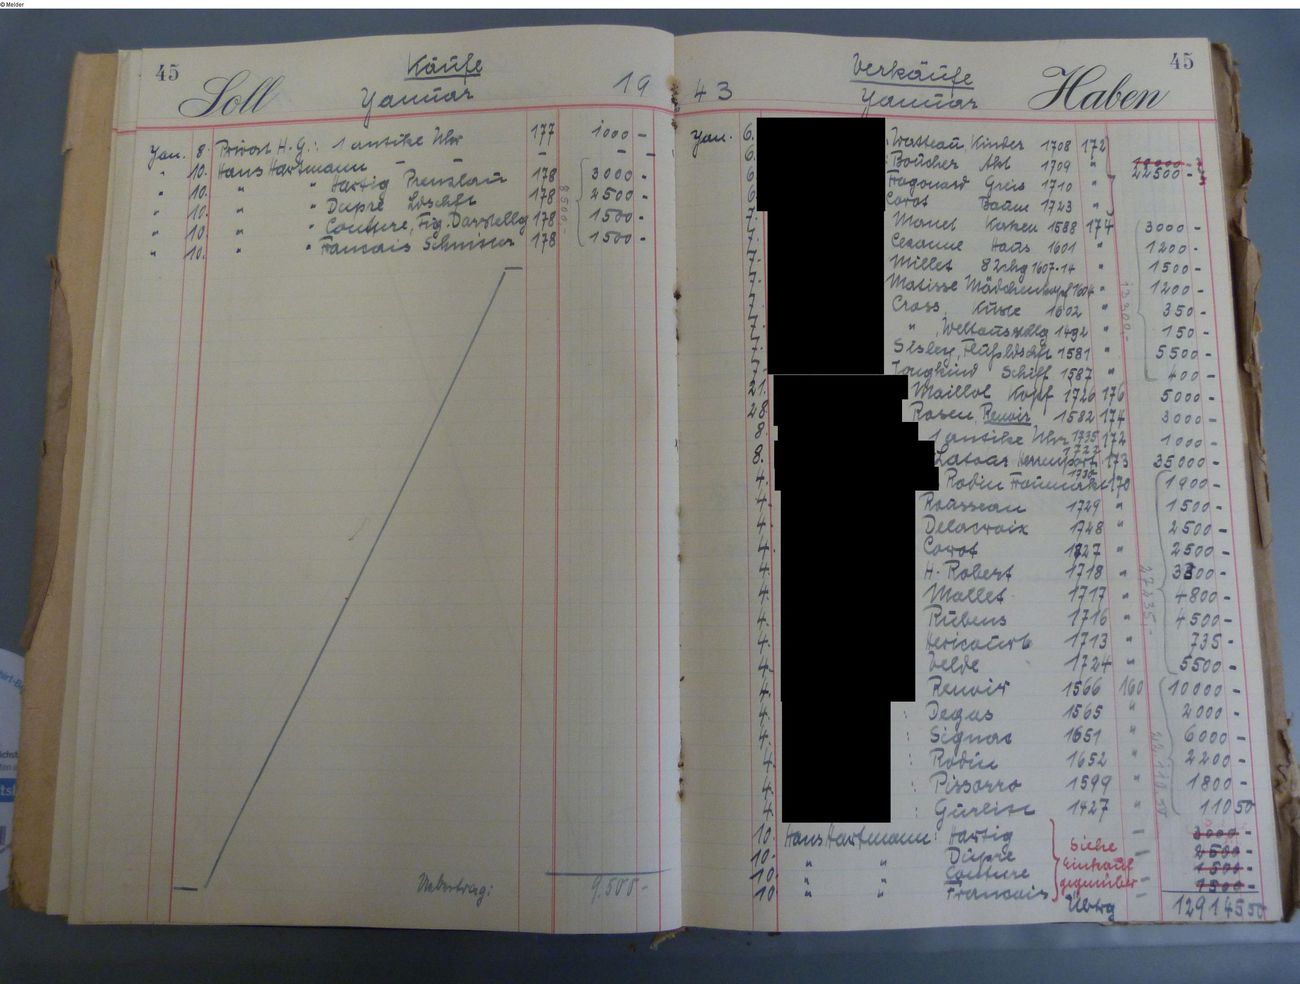 © Melder
45
Soll
Käufe
Januar
19
Jan. 8. Privat H.G.: 1 antike Uhr 177 1000 -
" 10. Hans Hartmann - - - -
" 10. " " Hartig Prenzlau 178 3000 -
" 10. " " Dupré 178 2500 -
" 10. " " Couture, Fig. Darstellg 178 1500 -
" 10. " " Francais 178 1500 -
8500.-
Uebertrag: 9.500 -
43
Verkäufe
Januar
Haben
45
Jan. 6. Watteau, Kinder 1708 172
6. Boucher Akt 1709 "
22500 -
6. Fragonard Greis 1710 "
6. Corot Baum 1723 "
7. Manet 1588 174 3000 -
7. Cezanne Haus 1601 " 1200 -
7. Millet 8 Zchg 1607-14 " 1500 -
7. Matisse Mädchenkopf 1604 " 1200 -
7. Cross Küste 1602 " 350 -
7. " Weltausstellg 1492 " 150 -
7. Sisley, 1581 " 5500 -
7. Jongkind Schiff 1587 " 400 -
13300.-
21. Maillol Kopf 1726 176 5000 -
28. Rosen, Renoir 1582 174 3000 -
8. 1 antike Uhr 1735 172 1000 -
8. 1722 173 35000 -
4. Rodin 1730 170 1900 -
4. Rousseau 1729 " 1500 -
4. Delacroix 1748 " 2500 -
4. Corot 1727 " 2500 -
4. H. Robert 1718 " 3300 -
4. Mallet 1717 " 4800 -
4. Rubens 1716 " 4500 -
4. Hericourt 1713 " 735 -
4. Velde 1724 " 5500 -
4. Renoir 1566 160 10000 -
4. : Degas 1565 " 2000 -
4. : Signac 1651 " 6000 -
4. : Rodin 1652 " 2200 -
4. : Pissarro 1599 " 1800 -
4. : Gurlitt 1427 " 110 50
10. Hans Hartmann: Hartig Siehe 3000 -
10. " " Dupre Einkauf 2500 -
10 " " Couture gegenüber 1500 -
10 " " Francais 1500 -
Übtrg 129145 50